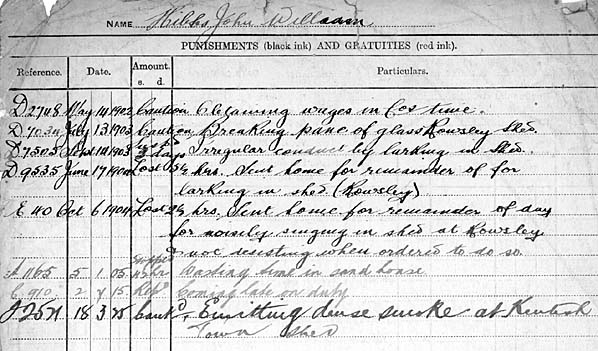 NAME Hibbs John William
PUNISHMENTS (black ink) AND GRATUITIES (red ink).
Reference. Date. Amount. Particulars.
s. d.
D 2748 May 14 1902 Caution Obtaining wages in Cos time.
D 7034 July 13 1903 Caution Breaking pane of glass Rowsley shed.
D 7505 Sept 14 1903 3 days Irregular conduct by larking in shed.
D 9535 June 17 1904 Lost 5½ hrs. Sent home for remainder of for
larking in shed (Rowsley)
E 40 Oct 6 1904 Lost 2½ hrs. Sent home for remainder of day
for noisily singing in shed at Rowsley
& not desisting when ordered to do so.
A 1165 5 1 05 Wasting time in sand house
C 910 2 7 15 Coming late on duty
J 2571 18 3 25 Caut⁠d, Emitting dense smoke at Kentish
Town shed